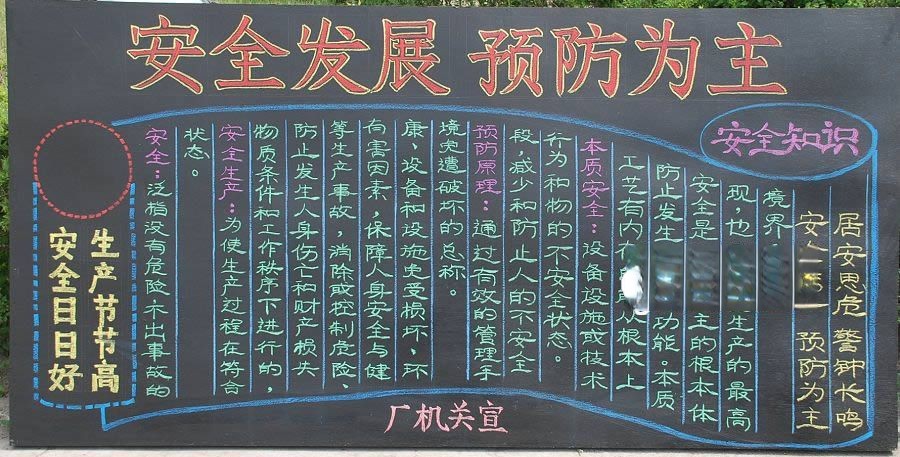 安全发展 预防为主
安全知识
生产节节高
安全日日好
安全：泛指没有危险不出事故的
状态。
安全生产：为使生产过程在符合
物质条件和工作秩序下进行的，
防止发生人身伤亡和财产损失
等生产事故，消除或控制危险、
有害因素，保障人身安全与健
康、设备和设施免受损坏、环
境免遭破坏的总称。
预防原理：通过有效的管理手
段，减少和防止人的不安全
行为和物的不安全状态。
本质安全：设备设施或技术
工艺有内在 从根本上
防止发生 功能。本质
安全是 主的根本体
现，也 生产的最高
境界
安全第一 预防为主
居安思危 警钟长鸣
厂机关宣